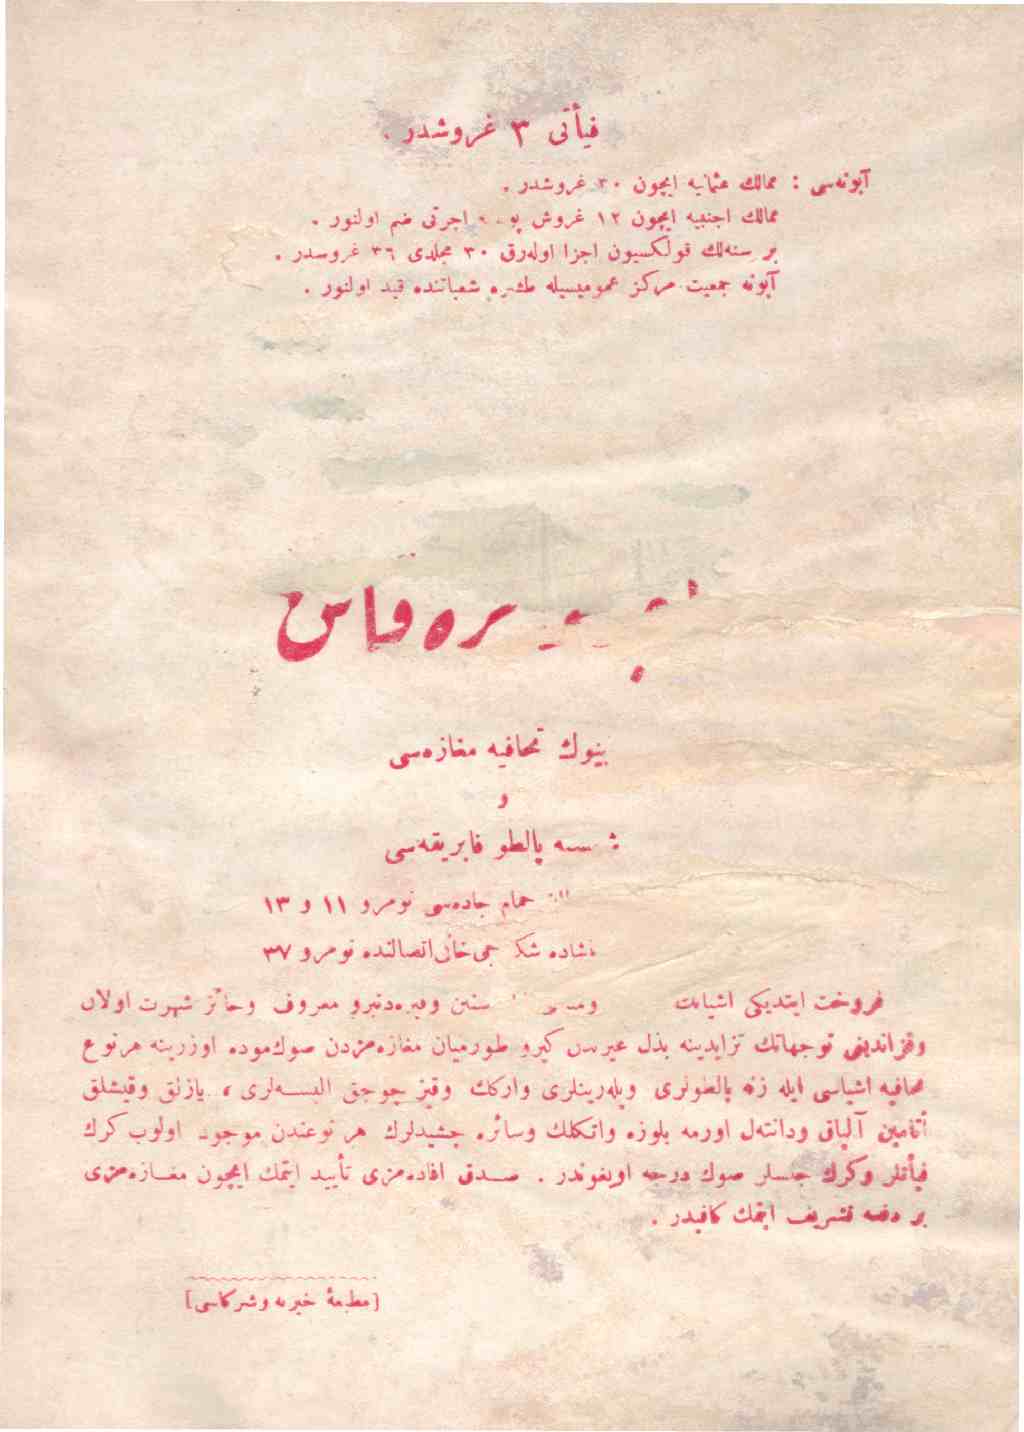 فیأتی ۳ غروشدر .
آبونه‌سی : ممالك عثمانیه ایچون ۳۰ غروشدر .
ممالك اجنبیه ایچون ۱۲ غروش اجرتی ضم اولنور .
بر سنه‌لك قولكسیون اجزا اوله‌رق ۳۰ مجلدی ۳٦ غروشدر .
آبونه جمعیت مركز عمومیسیله شعباتنده قید اولنور .
ره قاش
بیوك تحافیه مغازه‌سی
و
پالطو فابریقه‌سی
حمام جاده‌سی نومرو ۱۱ و ۱۳
جی‌خان اتصالنده نومرو ۳۷
فروخت ایتدیكی اشیانك معروف وحائز شهرت اولان
وقزاندیغی توجهاتك تزایدینه بذل غیرتدن كیرو طورمیان مغازه‌مزدن صوك‌موده اوزرینه هرنوع
تحافیه اشیاسی ایله زنه پالطولری وپله‌رینلری واركك وقیز چوجق البسه‌لری ، یازلق وقیشلق
آلپاق ودانته‌ل اورمه بلوزه واتكلك وسائره چشیدلرك هر نوعندن موجود اولوب كرك
فیأتلر وكرك جنسلر صوك درجه اویغوندر . صدق افاده‌مزی تأیید ایتمك ایچون مغازه‌مزی
بر دفعه تشریف ایتمك كافیدر .
[مطبعهٔ خیریه وشركاسی]